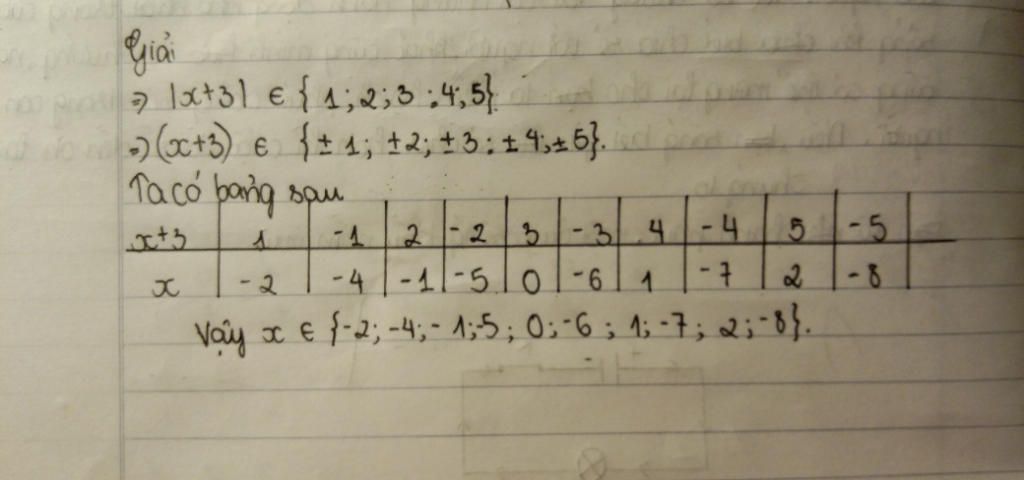 Giải
⇒ |x+3| ∈ {1;2;3;4;5}.
⇒ (x+3) ∈ {±1; ±2; ±3; ±4; ±5}.
Ta có bảng sau
x+3 1 -1 2 -2 3 -3 4 -4 5 -5
x -2 -4 -1 -5 0 -6 1 -7 2 -8
Vậy x ∈ {-2; -4; -1; -5; 0; -6; 1; -7; 2; -8}.